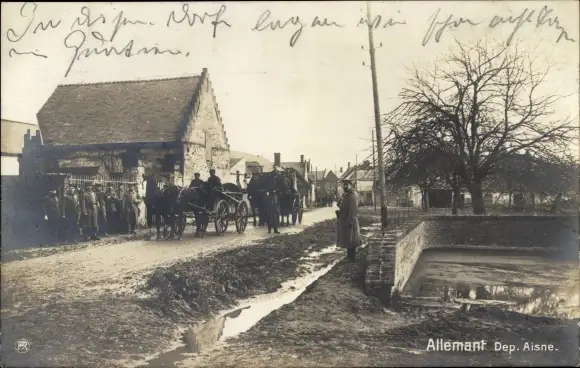 In diesem Dorf liegen wir schon
in Quartier.
Allemant Dep. Aisne.